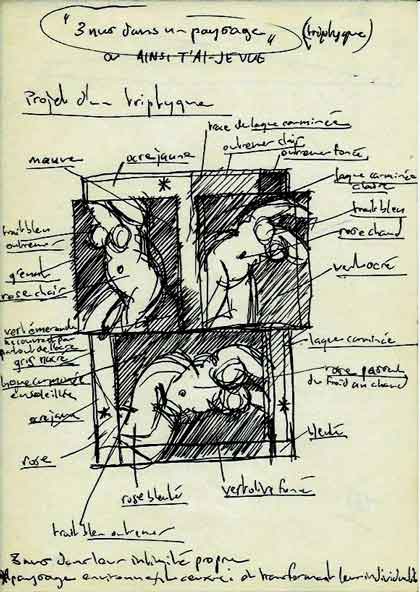 "3 nus dans un paysage" (triptyque)
ou AINSI T'AI-JE VUE
Projet d'un triptyque
trace de laque carminée
mauve
ocre jaune
outremer clair
outremer foncé
laque carminée
claire
trait bleu
outremer
trait bleu
rose chaud
rose clair
vert ocré
vert émeraude
gris
laque carminée
ensoleillée
rose
du froid au chaud
ocre jaune
rose
bleuté
rose bleuté
vert olive foncé
trait bleu outremer
3 nus dans leur intimité propre
* paysage environnant
et transformant leur